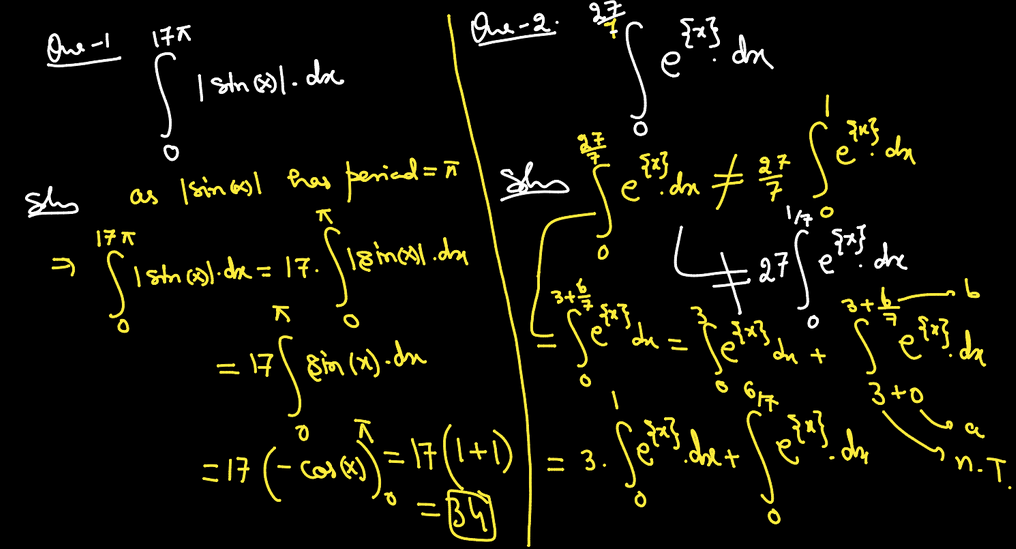 Que-1 ∫₀^{17π} |sin(x)|·dx
Soln as |sin(x)| has period = π
⇒ ∫₀^{17π} |sin(x)|·dx = 17·∫₀^{π} |sin(x)|·dx
= 17 ∫₀^{π} sin(x)·dx
= 17 (-cos(x))₀^{π} = 17(1+1)
= 34
Que-2. ∫₀^{27/7} e^{{x}}·dx
Soln ∫₀^{27/7} e^{{x}}·dx ≠ 27/7 ∫₀^{1} e^{{x}}·dx
≠ 27 ∫₀^{1/7} e^{{x}}·dx
= ∫₀^{3+6/7} e^{{x}} dx = ∫₀^{3} e^{{x}} dx + ∫_{3+0}^{3+6/7} e^{{x}}·dx
b
a
n.T.
= 3·∫₀^{1} e^{{x}}·dx + ∫₀^{6/7} e^{{x}}·dx